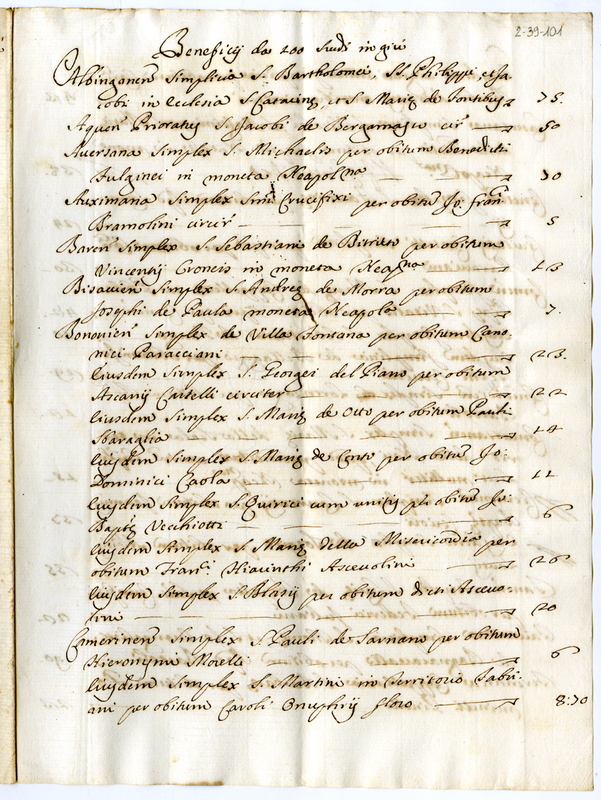 2-39-101
Beneficij da 200 scudi in giù
Albinganen Simplicia S. Bartholomei, SS. Philippi, et Ja-
cobi in Ecclesia S. Catarinę, et S. Marię de Fontibus 75.
Aquen Prioratus S. Jacobi de Bergamasco cir 50
Aversana Simplex S. Michaelis per obitum Benedicti
Fulginei in moneta Neapolna 70
Auximana Simplex Smi Crucifixi per obitũ Jo: Fran
Bramolini circir 5
Baren Simplex S. Sebastiani de Bitritto per obitum
Vincentij Croncis in moneta Neaplna 13
Bisacien Simplex S. Andreę de Morra per obitum
Josephi de Paula moneta Neapola 7.
Bononien Simplex de Villa Fontana per obitum Cano-
nici Paracciani 23.
Eiusdem Simplex S. Georgij del Piano per obitum
Ascanij Castelli circiter 22
Eiusdem Simplex S. Marię de Otto per obitum Pauli
Sbaraglia 14
Eiusdem Simplex S. Marię de Cento per obitũ Jo:
Dominici Caola 11
Eiusdem Simplex S. Quirici cum unitis p obitũ Jo:
Bapte Vecchiotti 6
Eiusdem Simplex S. Marię della Misericordia per
obitum Franci Hiacinthi Ascevolini 26
Eiusdem Simplex S. Blasij per obitum dicti Ascevo-
lini 20
Camerinen Simplex S. Pauli de Sarnano per obitum
Hieronymi Morelli 6
Eiusdem Simplex S. Martini in Territorio Fabri-
ani per obitum Caroli Onuphrij floro 8:70